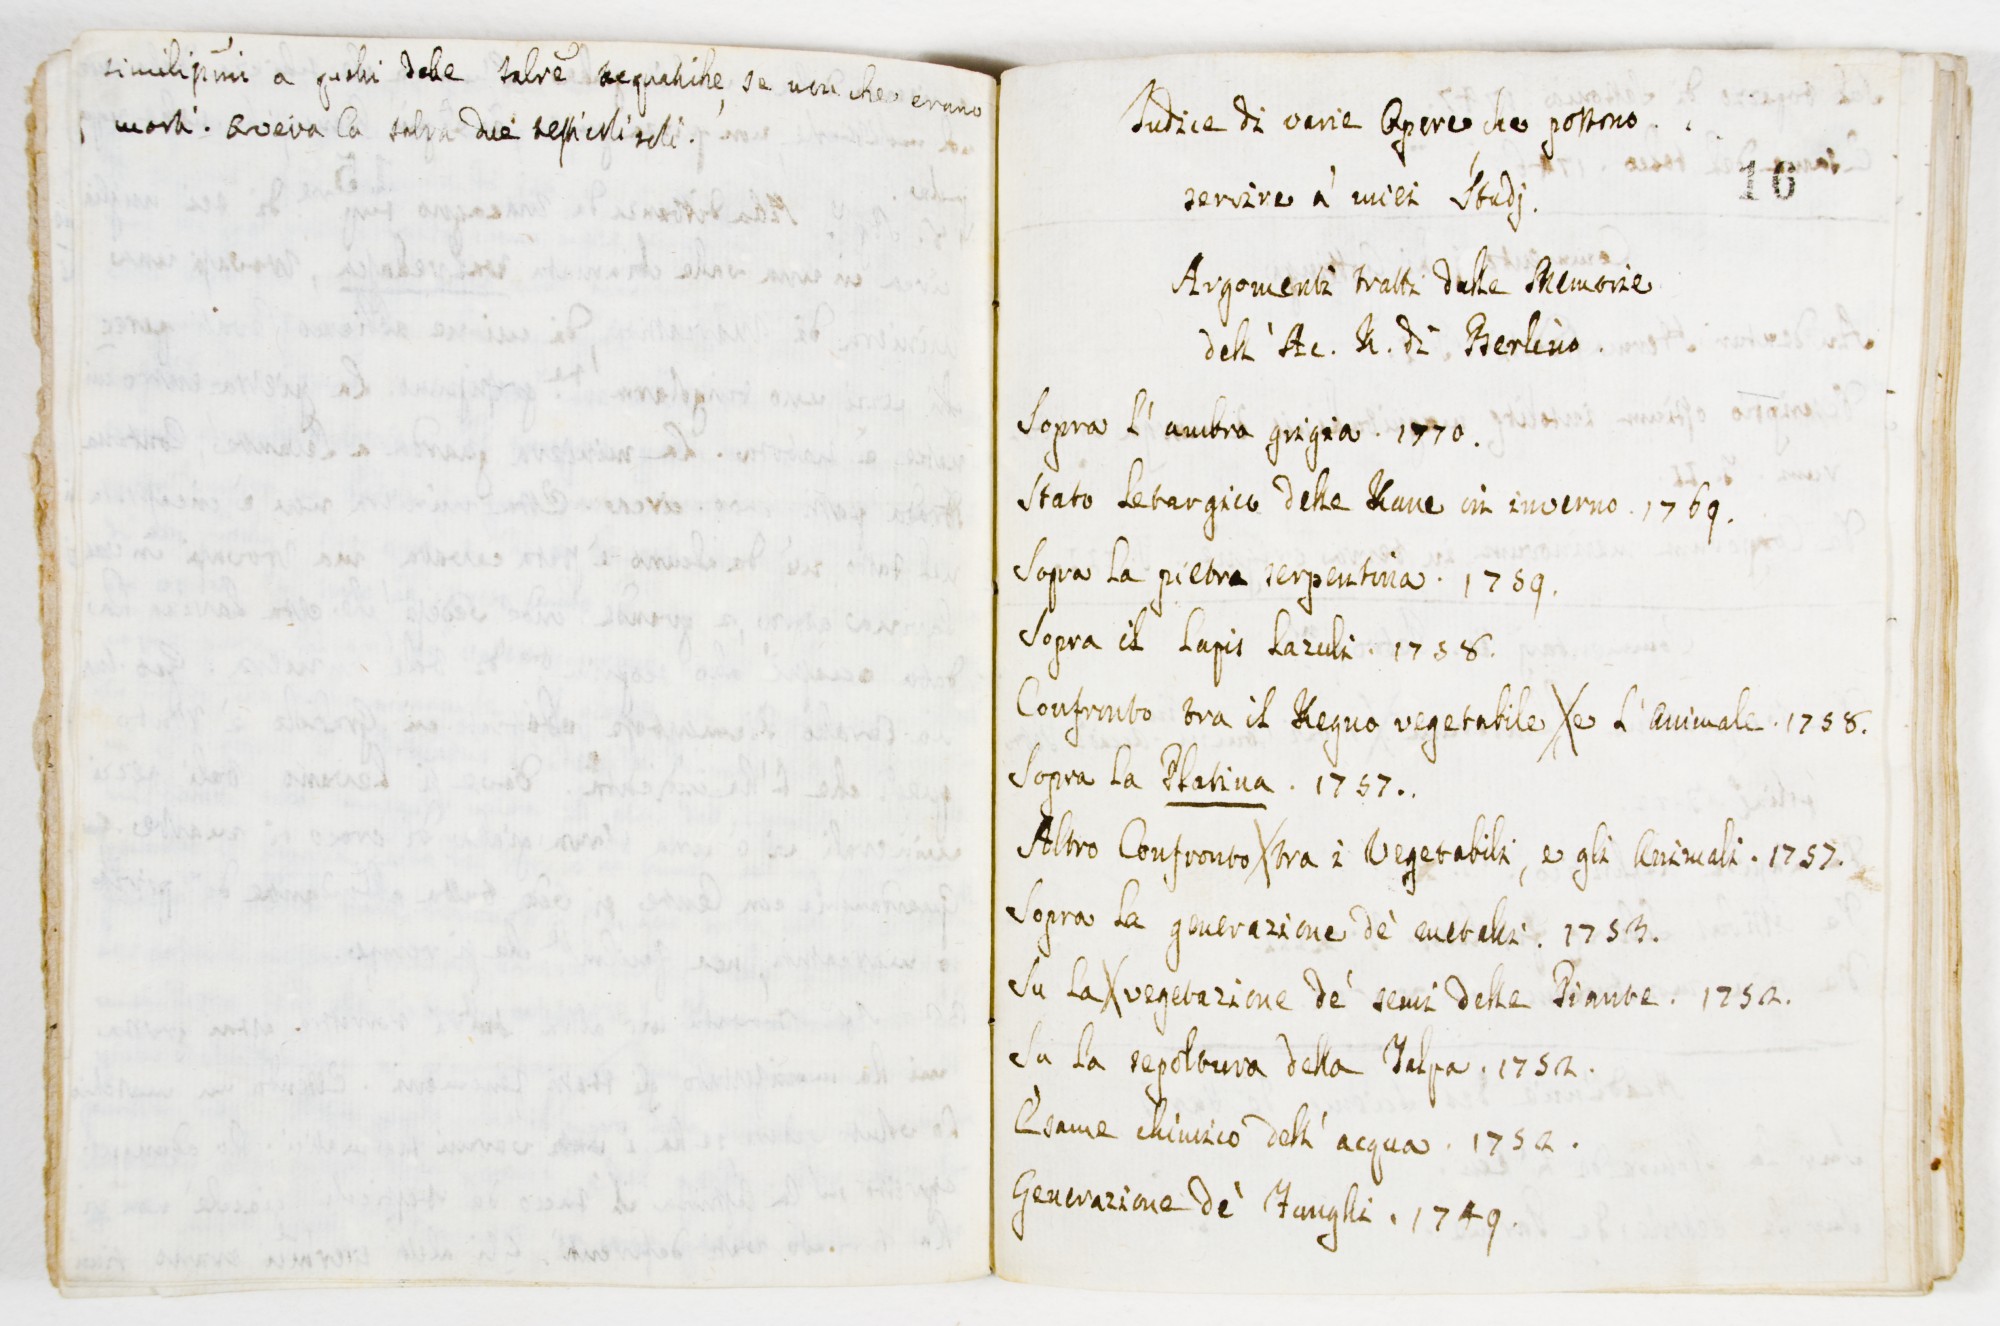 similiss̃mi a quelli delle salre͂ acquatiche, se non che erano
morti. Aveva la salra due testicoli soli.
Indice di varie Opere che possono
servire a' miei Studj.
16
Argomenti tratti dalle Memorie
dell' Ac. R. di Berlino.
Sopra l' ambra grigia. 1770.
Stato letargico delle Rane in inverno. 1769.
Sopra la pietra serpentina. 1759.
Sopra il Lapis Lazuli. 1758.
Confronto tra il Regno vegetabile e l' animale. 1758.
Sopra la Platina. 1757.
Altro Confronto tra i Vegetabili, e gli Animali. 1757.
Sopra la generazione de' metalli. 1753.
Su la vegetazione de' semi delle Piante. 1752.
Su la sepoltura della Talpa. 1752.
Esame chimico dell' acqua. 1752.
Generazione de' Funghi. 1749.